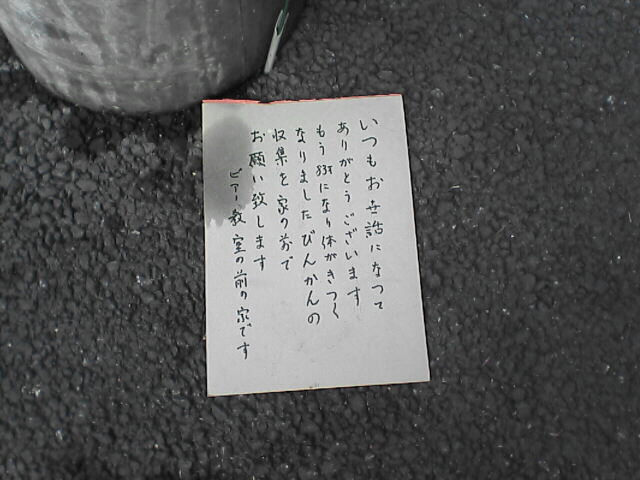 いつもお世話になって
ありがとうございます
もう83才になり体がきつく
なりましたびんかんの
収集を家の前で
お願い致します
ピアノ教室の前の家です